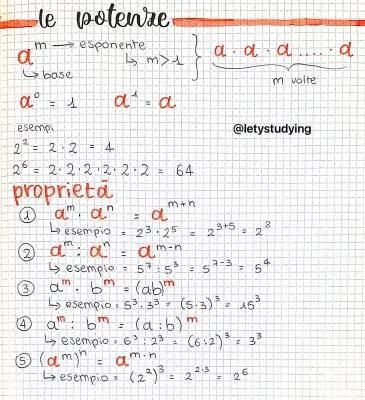 le potenze
aᵐ → esponente
↳ m>1
↳ base
a · a · a ..... · a
m volte
a⁰ = 1   a¹ = a
esempi
@letystudying
2² = 2 · 2 = 4
2⁶ = 2 · 2 · 2 · 2 · 2 · 2 = 64
proprietà
① aᵐ · aⁿ = aᵐ⁺ⁿ
↳ esempio = 2³ · 2⁵ = 2³⁺⁵ = 2⁸
② aᵐ : aⁿ = aᵐ⁻ⁿ
↳ esempio = 5⁷ : 5³ = 5⁷⁻³ = 5⁴
③ aᵐ · bᵐ = (ab)ᵐ
↳ esempio = 5³ · 3³ = (5·3)³ = 15³
④ aᵐ : bᵐ = (a : b)ᵐ
↳ esempio = 6³ : 2³ = (6:2)³ = 3³
⑤ (aᵐ)ⁿ = aᵐ˙ⁿ
↳ esempio = (2²)³ = 2²˙³ = 2⁶